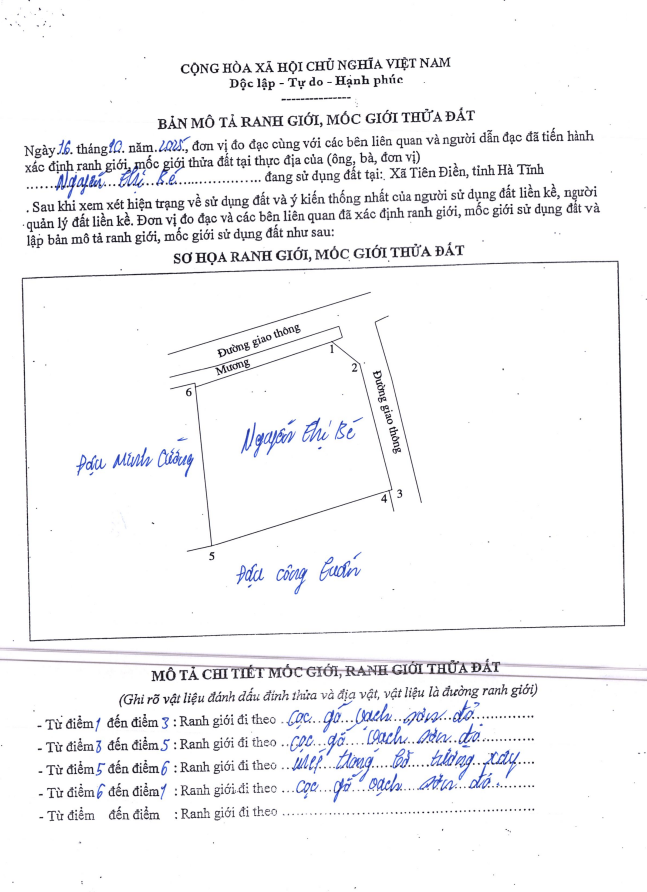 CỘNG HÒA XÃ HỘI CHỦ NGHĨA VIỆT NAM
Độc lập - Tự do - Hạnh phúc
BẢN MÔ TẢ RANH GIỚI, MỐC GIỚI THỬA ĐẤT
Ngày 16. tháng 10. năm 2025, đơn vị đo đạc cùng với các bên liên quan và người dẫn đạc đã tiến hành
xác định ranh giới, mốc giới thửa đất tại thực địa của (ông, bà, đơn vị)
Nguyễn Thị Bé đang sử dụng đất tại: Xã Tiên Điền, tỉnh Hà Tĩnh
. Sau khi xem xét hiện trạng về sử dụng đất và ý kiến thống nhất của người sử dụng đất liền kề, người
quản lý đất liền kề. Đơn vị đo đạc và các bên liên quan đã xác định ranh giới, mốc giới sử dụng đất và
lập bản mô tả ranh giới, mốc giới sử dụng đất như sau:
SƠ HỌA RANH GIỚI, MỐC GIỚI THỬA ĐẤT
Đường giao thông
Mương
1
2
6
Đường giao thông
Nguyễn Thị Bé
Đậu Minh Cường
4 3
5
Đậu Công Tuấn
MÔ TẢ CHI TIẾT MỐC GIỚI, RANH GIỚI THỬA ĐẤT
(Ghi rõ vật liệu đánh dấu đỉnh thửa và địa vật, vật liệu là đường ranh giới)
- Từ điểm 1 đến điểm 3 : Ranh giới đi theo cọc gỗ vạch sơn đỏ
- Từ điểm 3 đến điểm 5 : Ranh giới đi theo cọc gỗ vạch sơn đỏ
- Từ điểm 5 đến điểm 6 : Ranh giới đi theo mép trong bờ tường xây
- Từ điểm 6 đến điểm 1 : Ranh giới đi theo cọc gỗ vạch sơn đỏ.
- Từ điểm đến điểm : Ranh giới đi theo